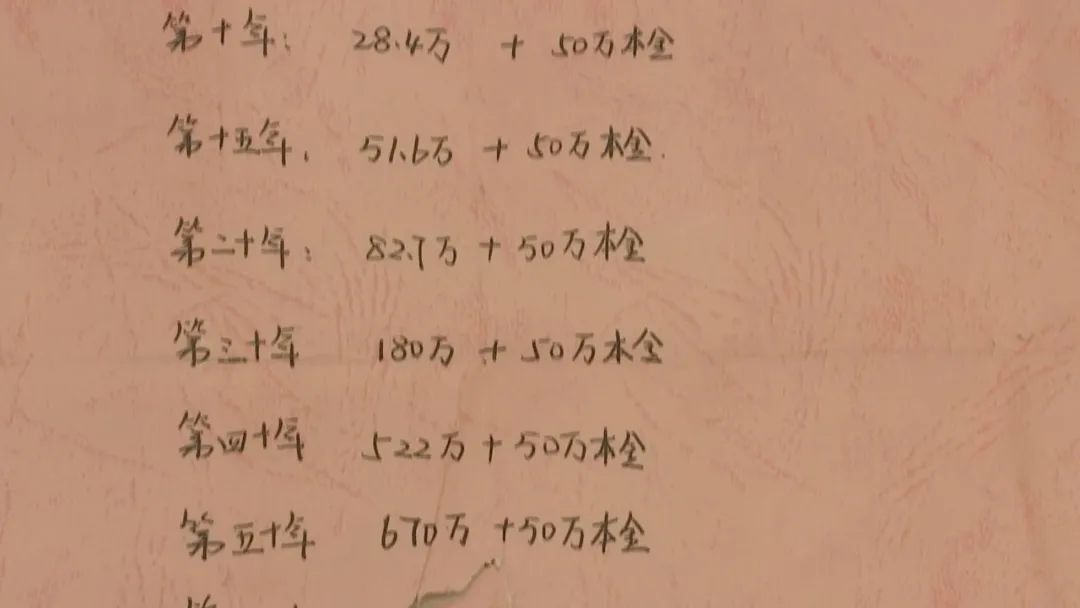 第十年: 28.4万 + 50万本金
第十五年. 51.6万 + 50万本金.
第二十年: 82.7万 + 50万本金
第三十年 180万 + 50万本金
第四十年 522万 + 50万本金
第五十年 670万 + 50万本金